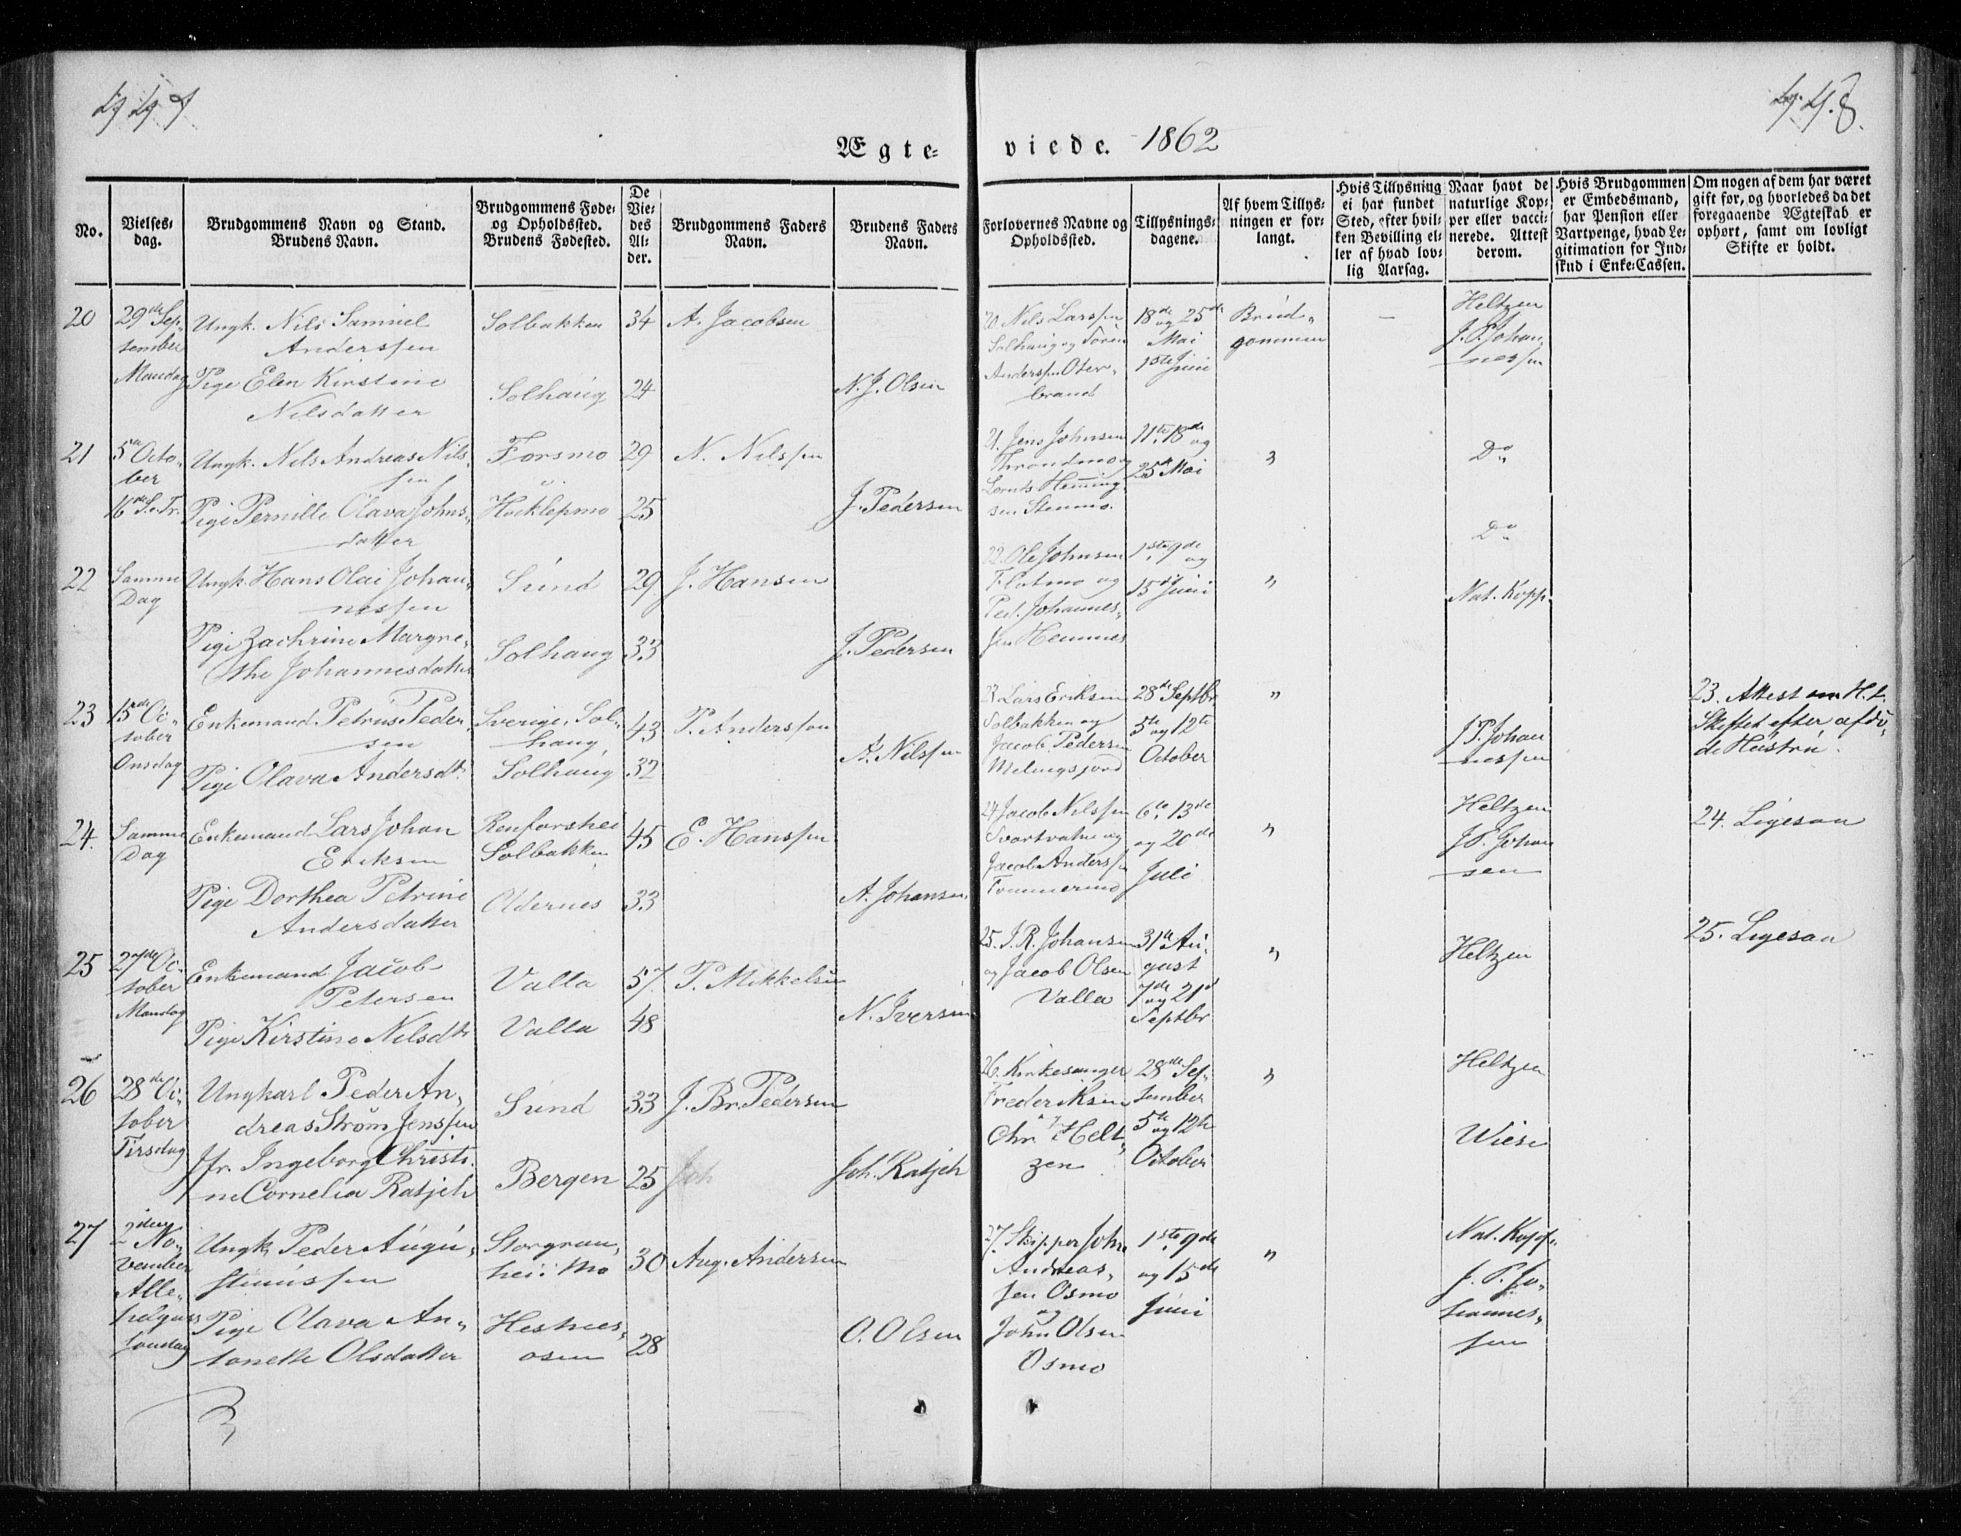 447
448.
Ægte-
viede. 1862
No.
Vielses-
dag.
Brudgommens Navn og Stand.
Brudens Navn.
Brudgommens Føde-
og Opholdssted.
Brudens Fødested.
De
Vie-
des
Al-
der.
Brudgommens Faders
Navn.
Brudens Faders
Navn.
Forlovernes Navne og
Opholdssted.
Tillysnings-
dagene.
Af hvem Tillys-
ningen er for-
langt.
Hvis Tillysning
ei har fundet
Sted, efter hvil-
ken Bevilling el-
ler af hvad lov-
lig Aarsag.
Naar havt de
naturlige Kop-
per eller vacci-
nerede. Attest
derom.
Hvis Brudgommen
er Embedsmand,
har Pension eller
Vartpenge, hvad Le-
gitimation for Ind-
skud i Enke-Cassen.
Om nogen af dem har været
gift før, og hvorledes da det
foregaaende Ægteskab er
ophørt, samt om lovligt
Skifte er holdt.
20
29de Sep-
tember
Mandag
Ungk. Nils Samuel
Anderssen
Pige Elen Kirstine
Nilsdatter
Solbakken
Solhaug
34
24
A. Jacobsen
N. J. Olsen
20 Nils Larssen
Solhaug og Søren
Anderssen Oter-
brand
18de og 25de
Mai
1ste Juni
Brud-
gommen
—
Heltzen
J. P. Johan-
nessen
21
5te Octo-
ber
16de S. e. Tr.
Ungk. Nils Andreas Nils-
sen
Pige Pernille Olava Johns-
datter
Forsmo
Hæklepmo
29
25
N. Nilssen
J. Pedersen
21. Jens Johnsen
Throndmo og
Lornts Henning-
sen Stenmo.
11te 18de og
25de Mai
"
Do
Do
22
Samme
Dag
Ungk. Hans Olai Johan-
nessen
Pige Zachrine Margre-
the Johannesdatter
Sund
Solhaug
29
33
J. Hansen
J. Pedersen
22. Ole Johnsen
Flotmo og
Ped. Johannes-
sen Hemnes
1ste 9de og
15de Juni
"
Nat. Kopp.
23
15de Oc-
tober
Onsdag
Enkemand Petrus Peder-
sen
Pige Olava Andersdtr
Sverige, Sol-
haug,
Solhaug
43
32
P. Anderssen
A. Nilssen
23. Lars Eriksen
Solbakken og
Jacob Pedersen
28de Septbr
5te og 12te
October
"
J. P. Johan
nessen
23. Attest om H. t.
Skiftet efter afdø-
de Hustru.
24.
Samme
Dag
Enkemand Lars Johan
Eriksen
Pige Dorthea Petrine
Andersdatter
Renforshei
Solbakken
Oldernes
45
33
E. Hanssen
A. Johansen.
24 Jacob Nilssen
Svartvatne og
Jacob Anderss
6te 13de
og 20de
Juli
"
Heltzen
J. P. Johan
sen
24. Ligesaa
25
27de Oc-
tober
Mandag
Enkemand Jacob
Petersen
Pige Kirstine Nilsdtr
Valla
Valla
57
48
P. Mikkelsen
N. Iversen
25. J. R. Johansen
og Jacob Olsen
Valla
31te Au-
gust
7de og 21de
Septbr
"
Heltzen
25. Ligesaa
26
28de Oc-
tober
Tirsdag
Ungkarl Peder An-
dreas Strøm Jenssen
Jfr. Ingeborg Christi-
ne Cornelia Ratjeh
Sund
Bergen
33
25
J. Br. Pedersen
Joh. Ratjeh
26. Kirkesanger
Frederiksen
og
Chr. Helt-
zen
28de Sep-
tember
5te og 12te
October
"
Heltzen
Wiese
27
2den No-
vember
Alle-
helgens
søndag
Ungk. Peder Augu-
stinussen
Pige Olava An-
tonette Olsdatter
Storgrau-
hei i Mo
Hestnes-
osen
30
28
Aug. Andersen
O. Olsen
27. Skipper John
Andreas-
sen Osmo
og
John Olsen
Osmo
1ste 9de
og 15de
Juni
"
Nat. Kopp.
J. P. Jo-
hannes-
sen